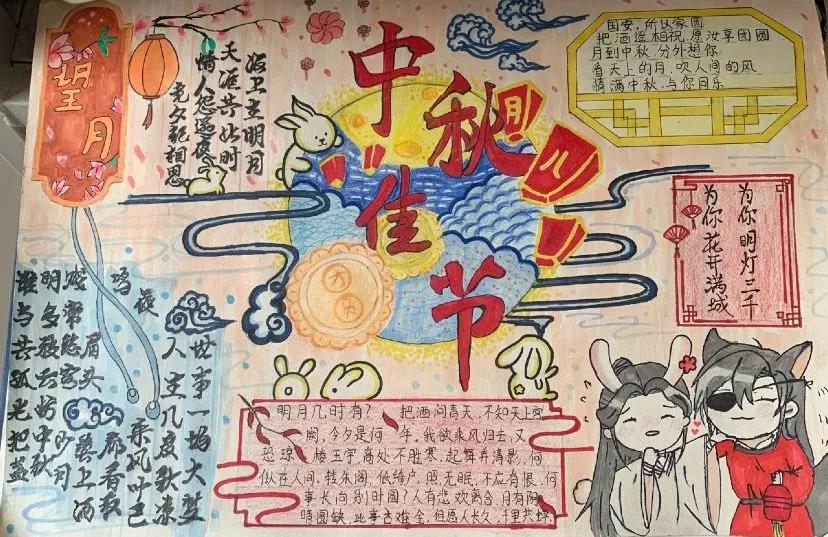 望月
海上生明月
天涯共此时
情人怨遥夜
竟夕起相思
中秋佳节
月
儿
国安,所以家圆
把酒遥相祝,愿汝享团圆
月到中秋,分外想你
看天上的月,吹人间的风
情满中秋,与你同乐
为你明灯三千
为你花开满城
世事一场大梦
人生几度秋凉
夜来风叶已
鸣廊看取
眉头鬓上酒
贱常愁客少月
明多被云妨中秋
谁与共孤光把盏
明月几时有?把酒问青天,不知天上宫
阙,今夕是何年,我欲乘风归去,又
恐琼楼玉宇,高处不胜寒,起舞弄清影,何
似在人间,转朱阁,低绮户,照无眠,不应有恨,何
事长向别时圆?人有悲欢离合,月有阴
晴圆缺,此事古难全,但愿人长久,千里共婵